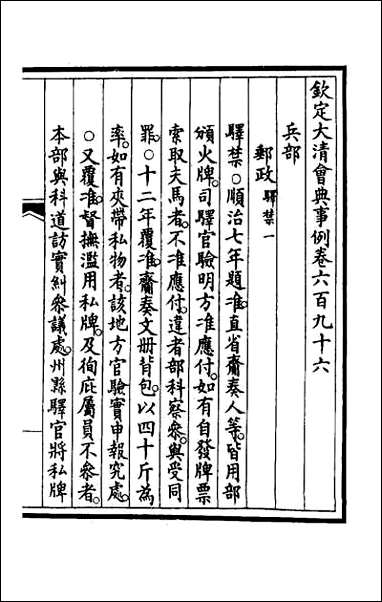 欽定大清會典事例卷六百九十六
兵部
郵政驛禁一
驛禁○順治七年題准直省齎奏人等皆用部
頒火牌司驛官驗明方准應付如有自發牌票
索取夫馬者不准應付違者部科察參與受同
罪○十二年覆准齎奏文册背包以四十斤為
率如有夾帶私物者該地方官驗實申報究處
○又覆准督撫濫用私牌及徇庇屬員不參者
本部與科道訪實糾參議處州縣驛官將私牌